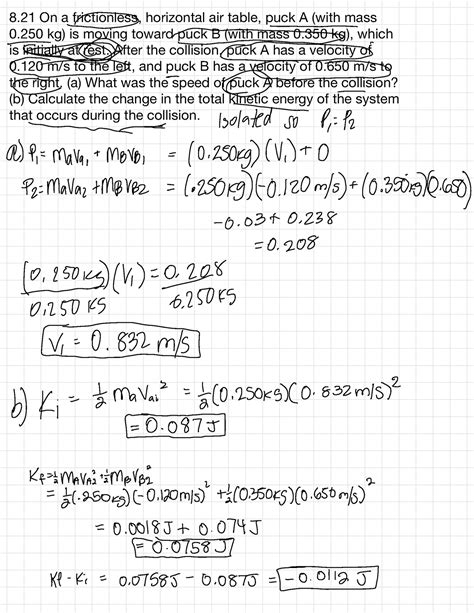 8.21 On a frictionless, horizontal air table, puck A (with mass
0.250 kg) is moving toward puck B (with mass 0.350 kg), which
is initially at rest. After the collision, puck A has a velocity of
0.120 m/s to the left, and puck B has a velocity of 0.650 m/s to
the right. (a) What was the speed of puck A before the collision?
(b) Calculate the change in the total kinetic energy of the system
that occurs during the collision. Isolated so P₁ = P₂
a) P₁ = MaVa₁ + MBVB₁ = (0.250kg)(V₁) + 0
P₂ = MaVa₂ + MBVB2 = (.250kg)(-0.120 m/s) + (0.350kg)(0.650)
-0.03 + 0.238
= 0.208
(0.250kg)(V₁) = 0.208
0.250 kg 0.250 kg
V₁ = 0.832 m/s
b) Ki = 1/2 maVa₁² = 1/2 (0.250kg)(0.832 m/s)²
= 0.087 J
Kf = 1/2 MAVA2² + 1/2 MBVB2²
= 1/2 (.250kg)(-0.120m/s)² + 1/2 (0.350kg)(0.650 m/s)²
= 0.0018J + 0.074J
= 0.0758J
Kf - Ki = 0.0758J - 0.087J = -0.0112 J